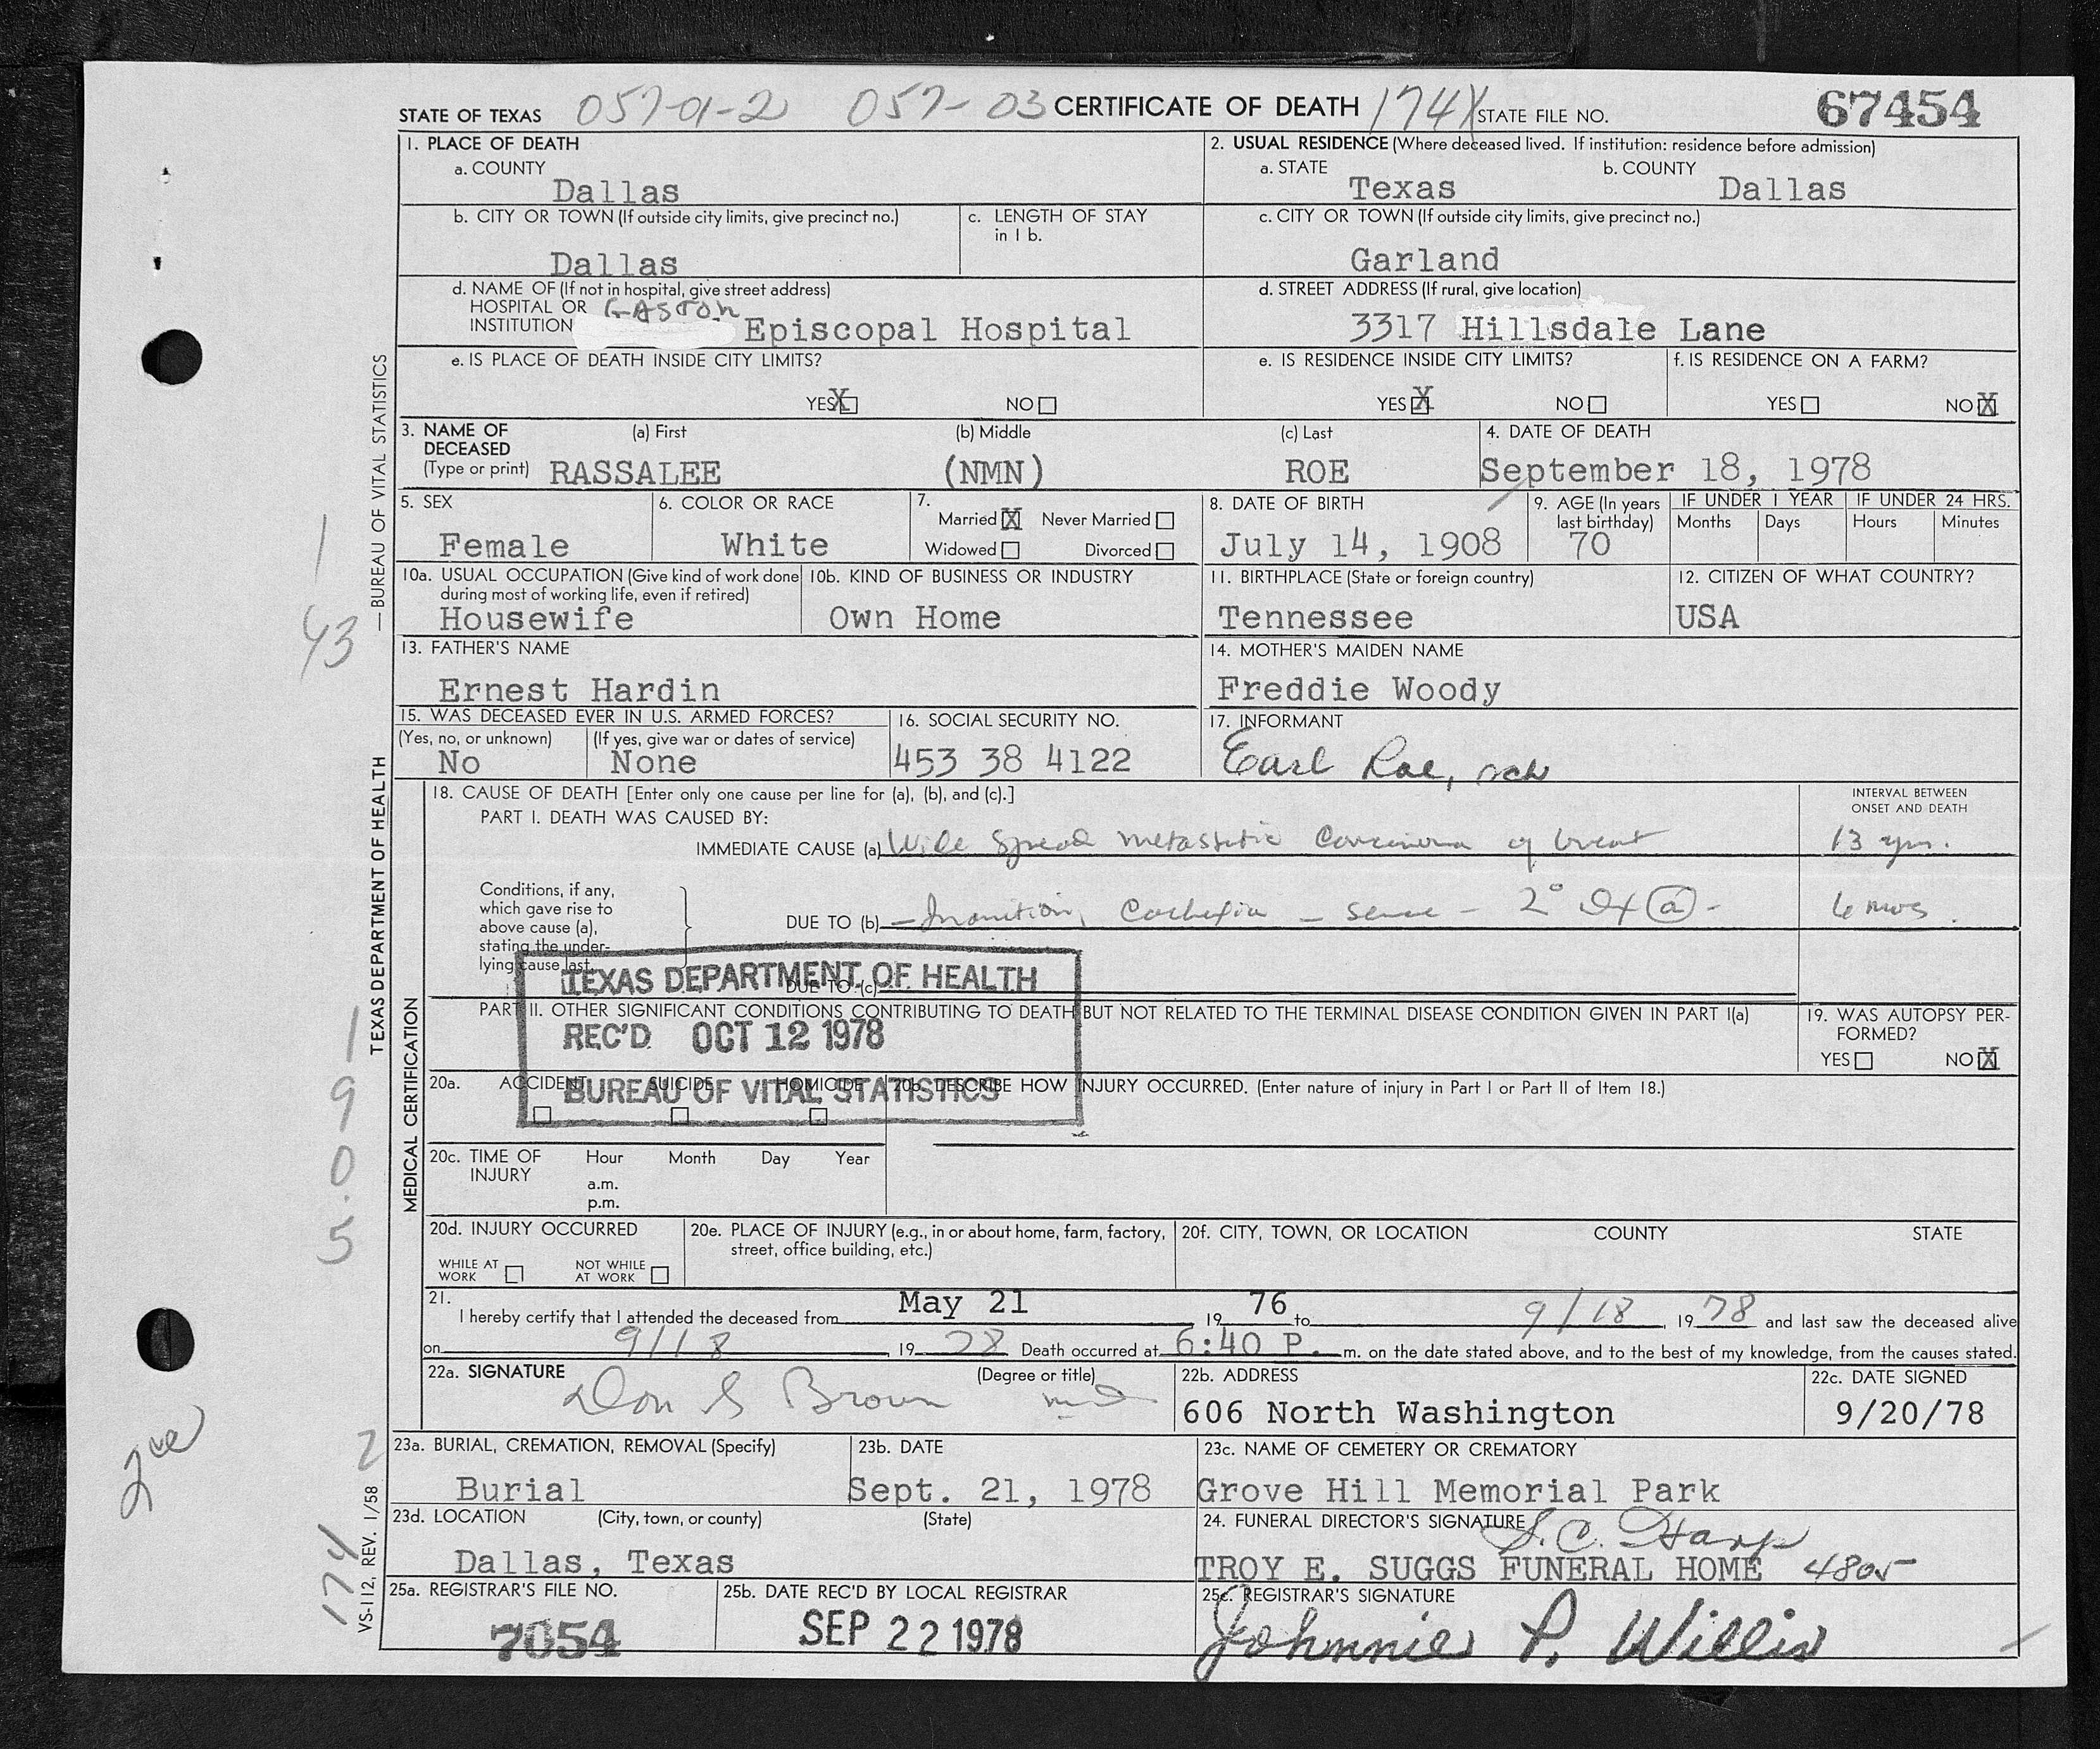 STATE OF TEXAS 057-01-2 057-03 CERTIFICATE OF DEATH 174X STATE FILE NO. 67454
1. PLACE OF DEATH
a. COUNTY
Dallas
2. USUAL RESIDENCE (Where deceased lived. If institution: residence before admission)
a. STATE b. COUNTY
Texas Dallas
b. CITY OR TOWN (If outside city limits, give precinct no.)
Dallas
c. LENGTH OF STAY
in 1 b.
c. CITY OR TOWN (If outside city limits, give precinct no.)
Garland
d. NAME OF (If not in hospital, give street address)
HOSPITAL OR GASTON
INSTITUTION Episcopal Hospital
d. STREET ADDRESS (If rural, give location)
3317 Hillsdale Lane
e. IS PLACE OF DEATH INSIDE CITY LIMITS?
YES X NO
e. IS RESIDENCE INSIDE CITY LIMITS?
YES X NO
f. IS RESIDENCE ON A FARM?
YES NO X
3. NAME OF DECEASED (a) First (b) Middle (c) Last
(Type or print) RASSALEE (NMN) ROE
4. DATE OF DEATH
September 18, 1978
5. SEX
Female
6. COLOR OR RACE
White
7.
Married X Never Married
Widowed Divorced
8. DATE OF BIRTH
July 14, 1908
9. AGE (In years
last birthday)
70
IF UNDER 1 YEAR
Months Days
IF UNDER 24 HRS.
Hours Minutes
10a. USUAL OCCUPATION (Give kind of work done
during most of working life, even if retired)
Housewife
10b. KIND OF BUSINESS OR INDUSTRY
Own Home
11. BIRTHPLACE (State or foreign country)
Tennessee
12. CITIZEN OF WHAT COUNTRY?
USA
13. FATHER'S NAME
Ernest Hardin
14. MOTHER'S MAIDEN NAME
Freddie Woody
15. WAS DECEASED EVER IN U.S. ARMED FORCES?
(Yes, no, or unknown) (If yes, give war or dates of service)
No None
16. SOCIAL SECURITY NO.
453 38 4122
17. INFORMANT
Earl Roe,
18. CAUSE OF DEATH [Enter only one cause per line for (a), (b), and (c).]
INTERVAL BETWEEN
ONSET AND DEATH
PART I. DEATH WAS CAUSED BY:
IMMEDIATE CAUSE (a) Wide Spread metastatic Carcinoma of breast 13 yrs.
Conditions, if any,
which gave rise to
above cause (a),
stating the under-
lying cause last.
DUE TO (b) - Inanition, Cachexia - 2° (a) - 6 mos.
DUE TO (c)
TEXAS DEPARTMENT OF HEALTH
REC'D OCT 12 1978
BUREAU OF VITAL STATISTICS
PART II. OTHER SIGNIFICANT CONDITIONS CONTRIBUTING TO DEATH BUT NOT RELATED TO THE TERMINAL DISEASE CONDITION GIVEN IN PART I(a)
19. WAS AUTOPSY PER-
FORMED?
YES NO X
20a. ACCIDENT SUICIDE HOMICIDE
20b. DESCRIBE HOW INJURY OCCURRED. (Enter nature of injury in Part I or Part II of Item 18.)
20c. TIME OF
INJURY
Hour Month Day Year
a.m.
p.m.
20d. INJURY OCCURRED
WHILE AT
WORK
NOT WHILE
AT WORK
20e. PLACE OF INJURY (e.g., in or about home, farm, factory,
street, office building, etc.)
20f. CITY, TOWN, OR LOCATION COUNTY STATE
21.
I hereby certify that I attended the deceased from May 21 19 76 to 9/18, 19 78 and last saw the deceased alive
on 9/18, 19 78 Death occurred at 6:40 P. m. on the date stated above, and to the best of my knowledge, from the causes stated.
22a. SIGNATURE (Degree or title)
Don S Brown MD
22b. ADDRESS
606 North Washington
22c. DATE SIGNED
9/20/78
23a. BURIAL, CREMATION, REMOVAL (Specify)
Burial
23b. DATE
Sept. 21, 1978
23c. NAME OF CEMETERY OR CREMATORY
Grove Hill Memorial Park
23d. LOCATION (City, town, or county) (State)
Dallas, Texas
24. FUNERAL DIRECTOR'S SIGNATURE S. C. Harp
TROY E. SUGGS FUNERAL HOME 4805
25a. REGISTRAR'S FILE NO.
7054
25b. DATE REC'D BY LOCAL REGISTRAR
SEP 22 1978
25c. REGISTRAR'S SIGNATURE
Johnnie P. Willis
TEXAS DEPARTMENT OF HEALTH — BUREAU OF VITAL STATISTICS
MEDICAL CERTIFICATION
VS-112, REV. 1/58
1
43
1
9
0
5
2
174